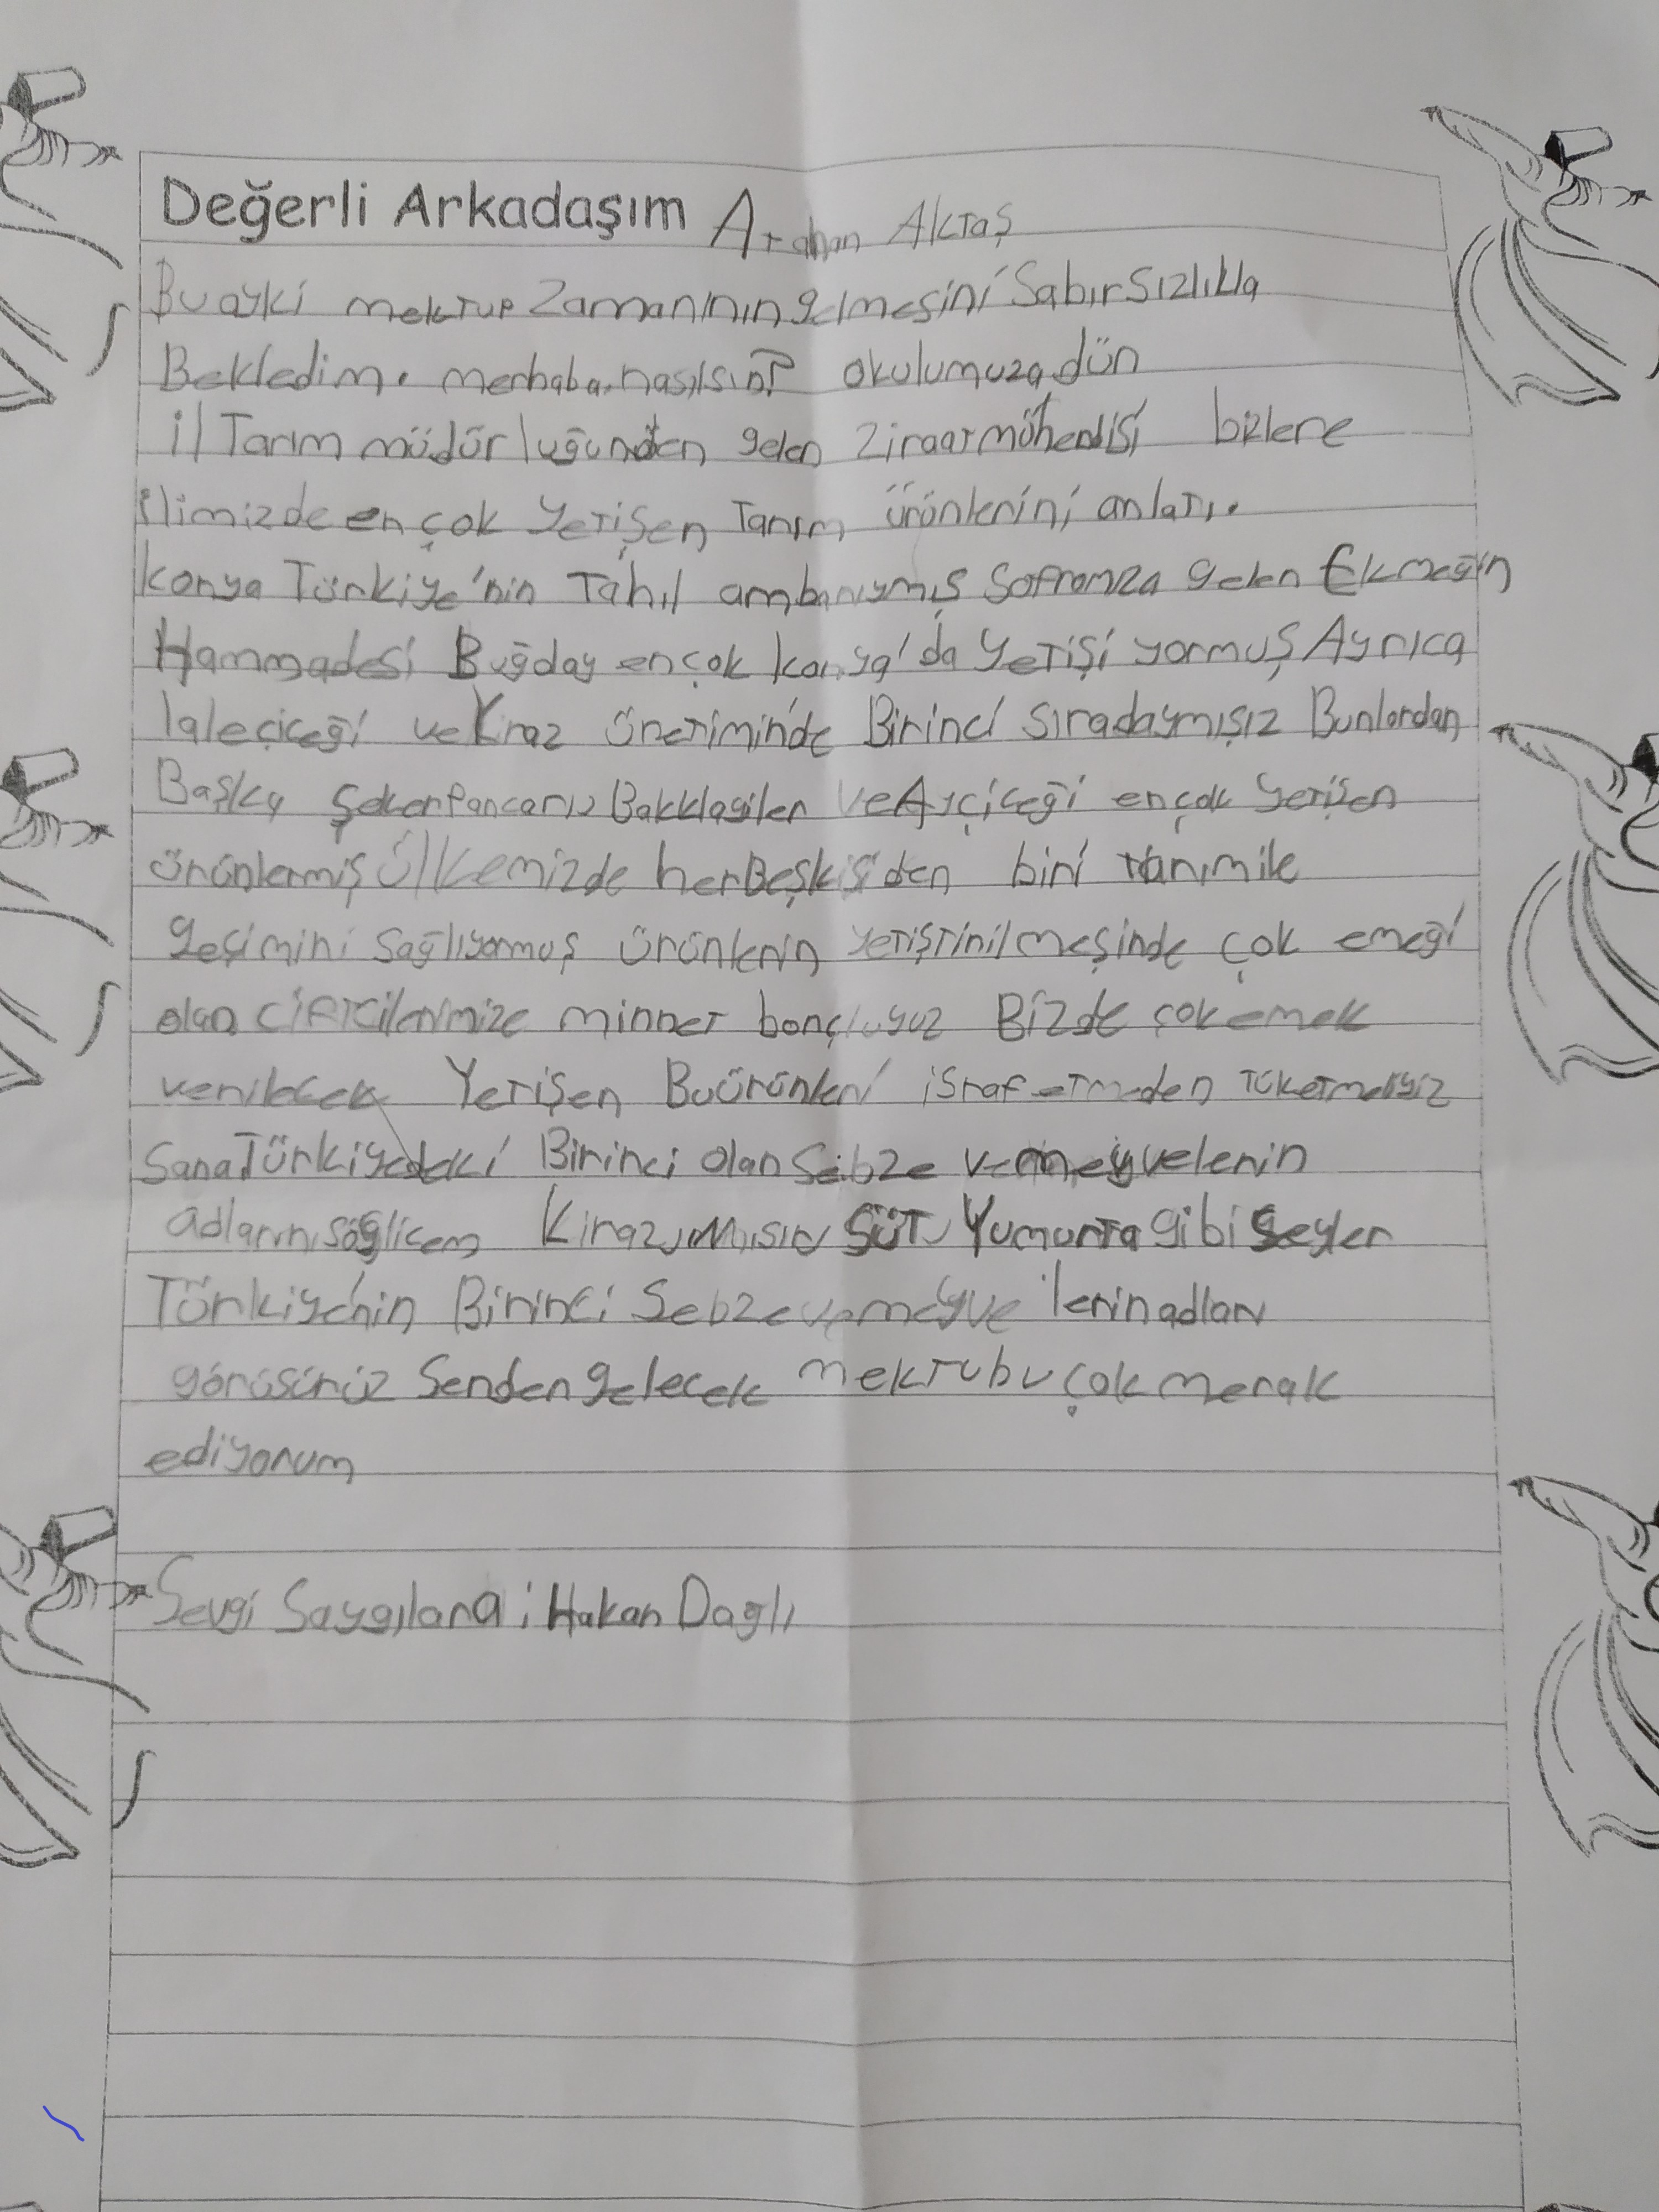 Değerli Arkadaşım Arahan Aktaş
Bu ayki mektup Zamanının gelmesini Sabır Sızlıkla
Bekledim. merhaba, nasılsın? okulumuza dün
il Tarım müdür luğünden gelen Ziraat mühendisi bizlere
ilimizde en çok Yetişen Tarım ürünlerini anlatı.
konya Türkiye'nin Tahıl ambarıymış Soframıza gelen Ekmeğin
Hammadesi Buğday en çok konya'da Yetişi yormuş Ayrıca
lale çiceği ve Kiraz üretimin'de Birinci sıradaymışız Bunlardan
Başka şekerPancarı, Bakklagiler ve Ayçiceği en çok Yetişen
ürünlermiş Ülkemizde her Beş kişi den biri tarım ile
geçimini sağlıyormuş ürünlerin yetiştirilmeşinde çok emeği
olan Çiftcilerimize minnet borçluyuz Bizde çok emek
verilecek Yetişen Bu ürünleri israf etmeden Tüketmeliyiz
Sana Türkiyedeki Birinci olan Sebze ve meyvelerin
adlarını söğlicem Kiraz, Mısır, SüT, Yumurta gibi Şeyler
Türkiye'nin Birinci Sebze ve meyve lerin adları
görüsürüz Senden gelecek mektubu çok merak
ediyorum
Sevgi Saygılara ; Hakan Daglı